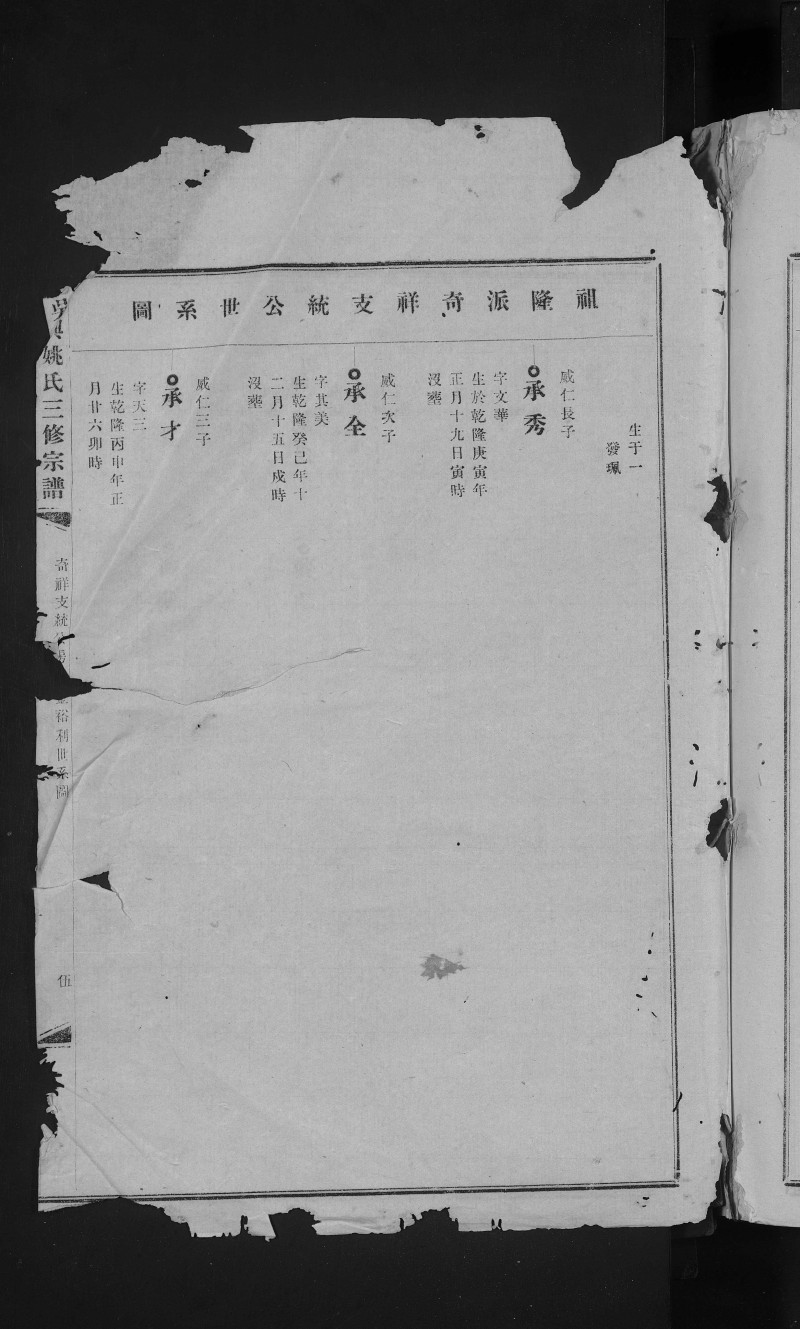 祖隆派奇祥支統公世系圖
生于一
發珮
威仁長子
承秀
字文華
生於乾隆庚寅年
正月十九日寅時
沒塟
威仁次子
承全
字其美
生乾隆癸巳年十
二月十五日戍時
沒塟
威仁三子
承才
字天三
生乾隆丙申年正
月廿六卯時
吳興姚氏三修宗譜
奇祥支統
裕利世系圖
伍